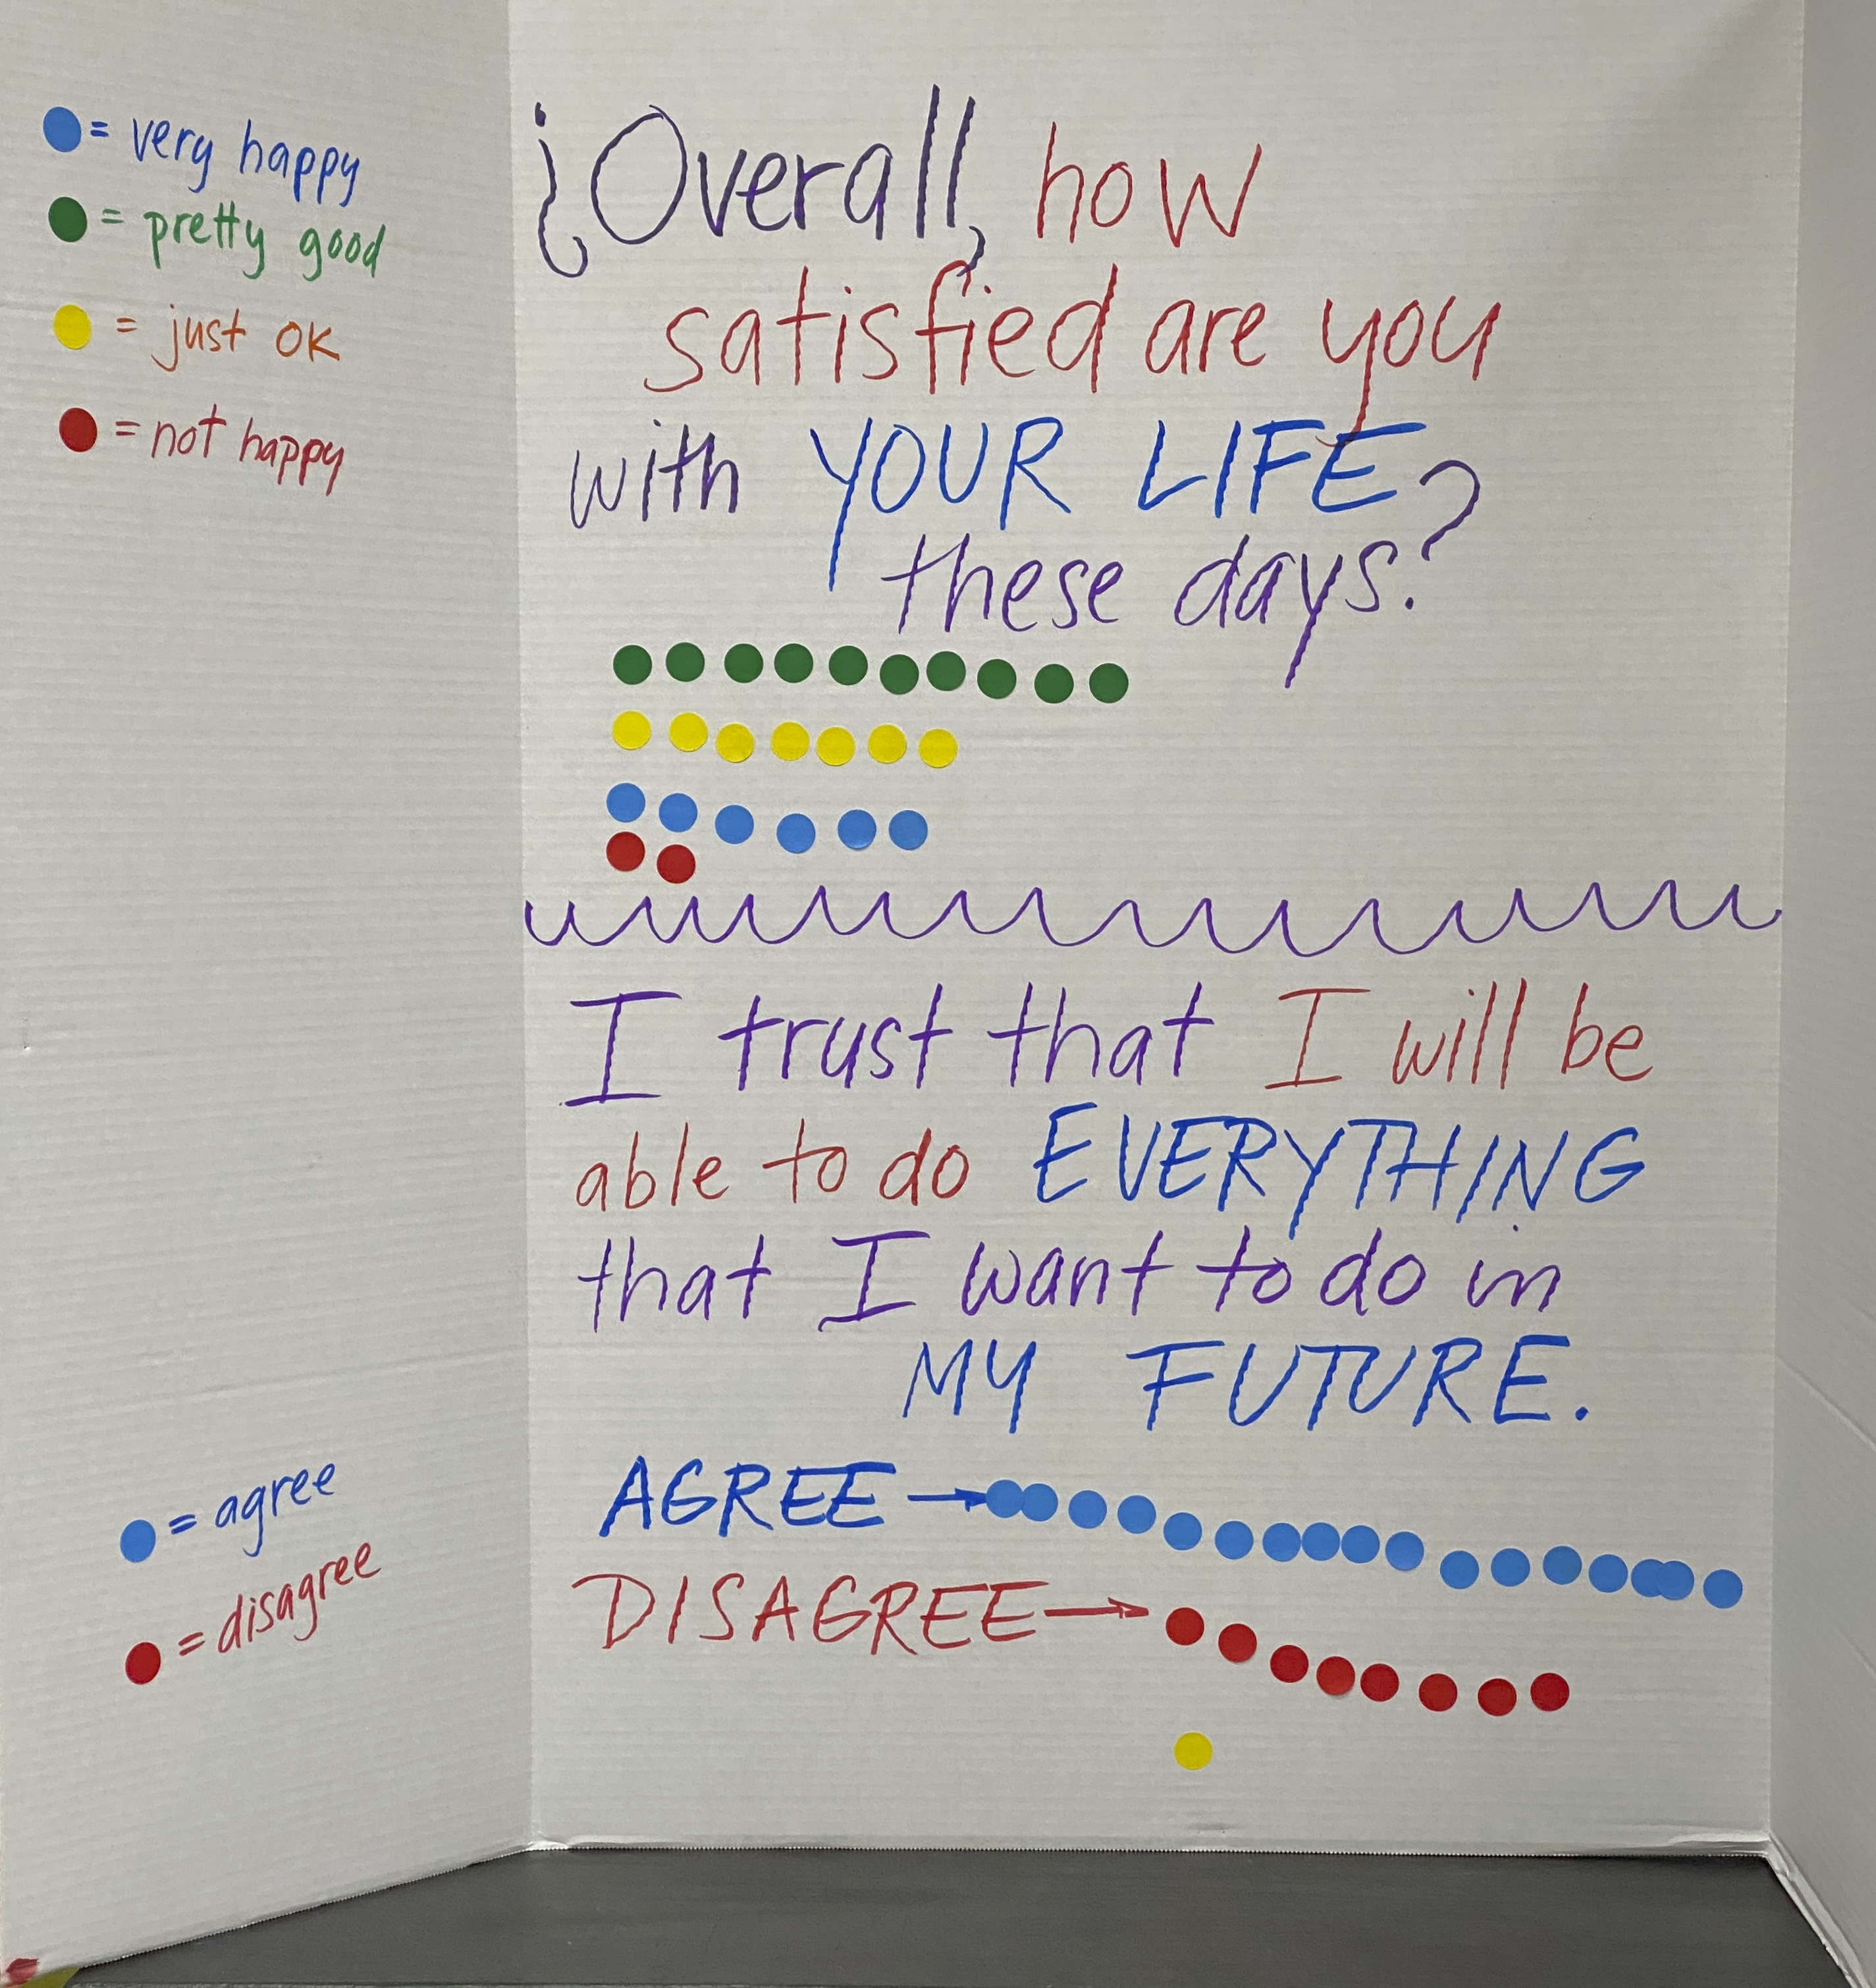 = very happy
= pretty good
= just OK
= not happy
¿Overall, how
satisfied are you
with YOUR LIFE
these days?
I trust that I will be
able to do EVERYTHING
that I want to do in
MY FUTURE.
AGREE →
DISAGREE →
= agree
= disagree